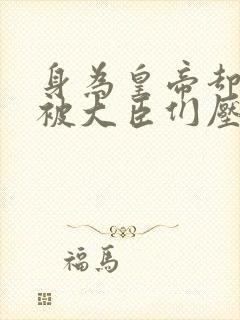 身為皇帝却
被大臣们壓
福馬